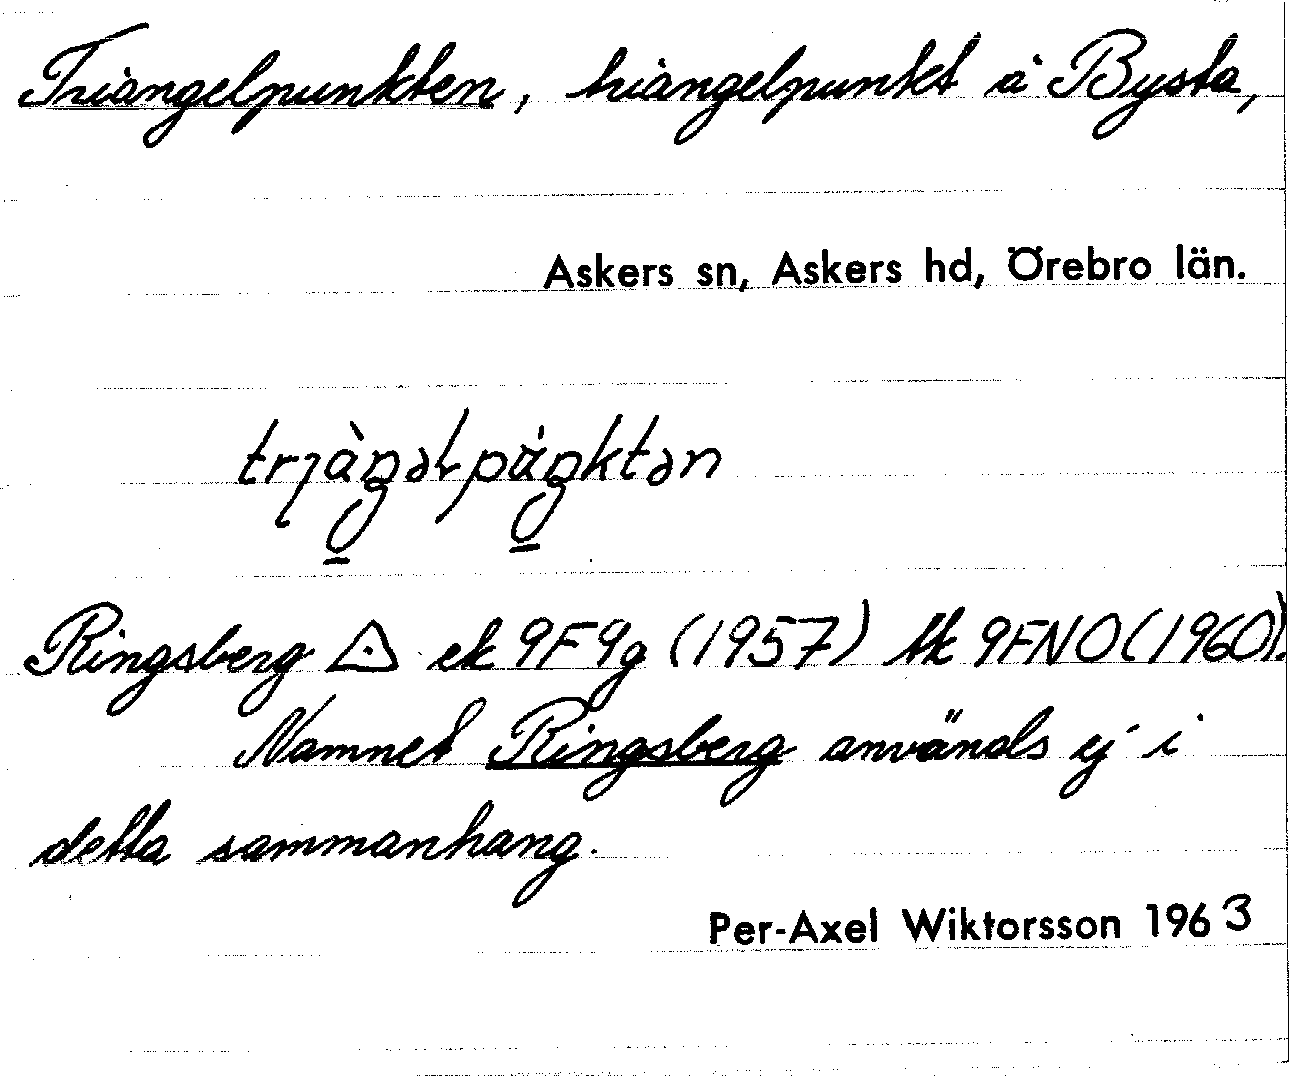 Triangelpunkten, triangelpunkt å Bysta,
Askers sn, Askers hd, Örebro län.
Ringsberg △ ek 9F9g (1957) tk 9FNO (1960).
Namnet Ringsberg används ej i
detta sammanhang.
Per-Axel Wiktorsson 1963